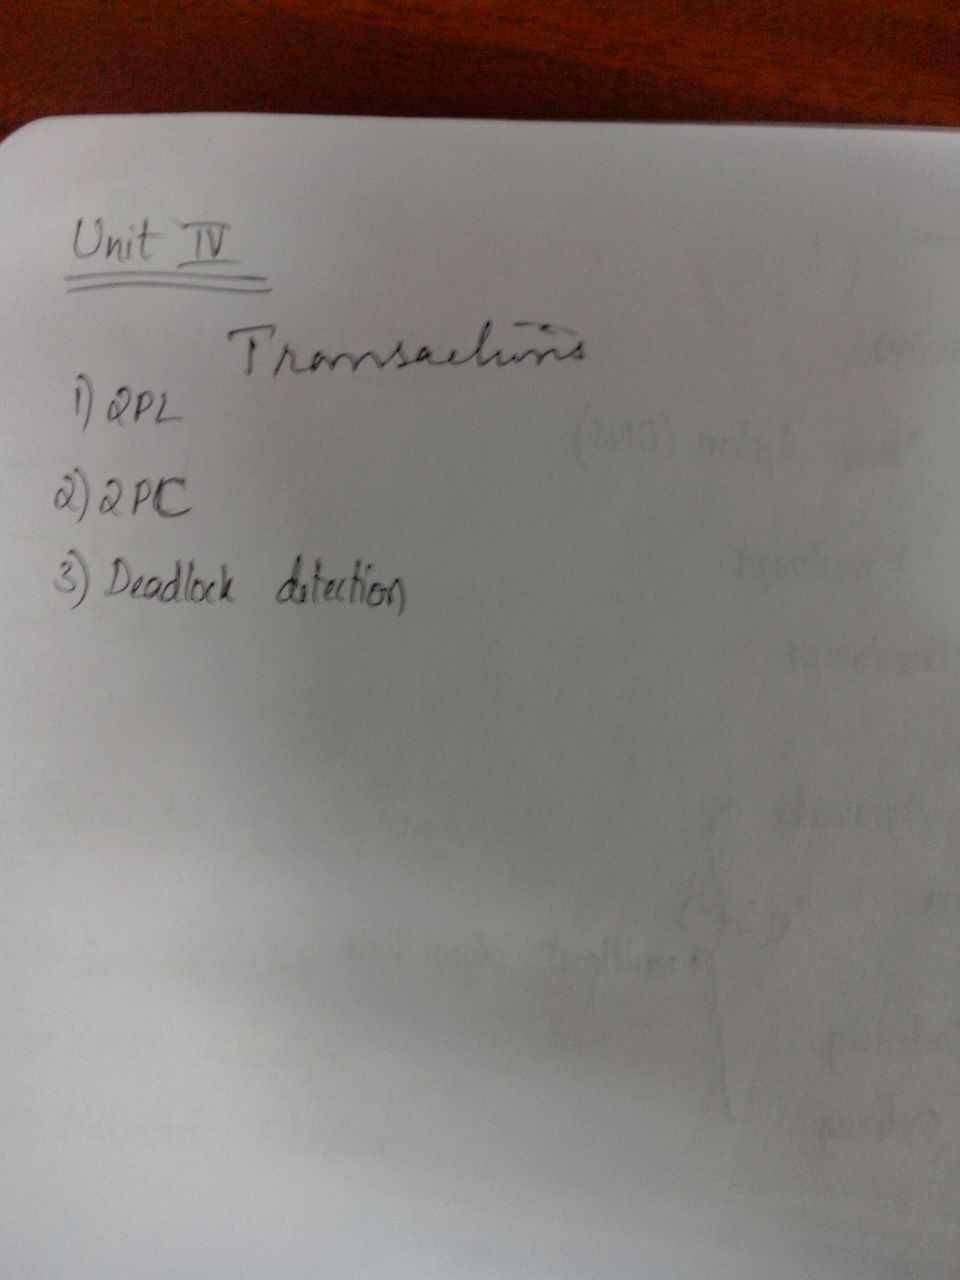 Unit IV
Transactions
1) 2PL
2) 2PC
3) Deadlock detection